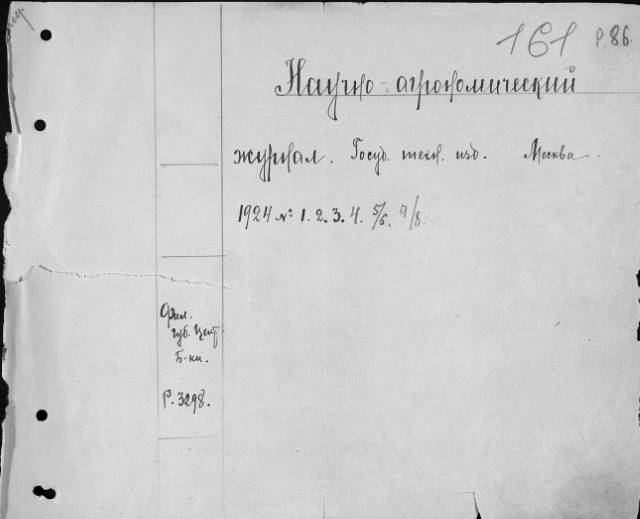 161 Р.86.
Научно-агрономический
журнал. Госуд. техн. изд. Москва.
1924 № 1. 2. 3. 4. 5/6. 7/8.
губ. Цент.
Б-ки.
Р. 3298.